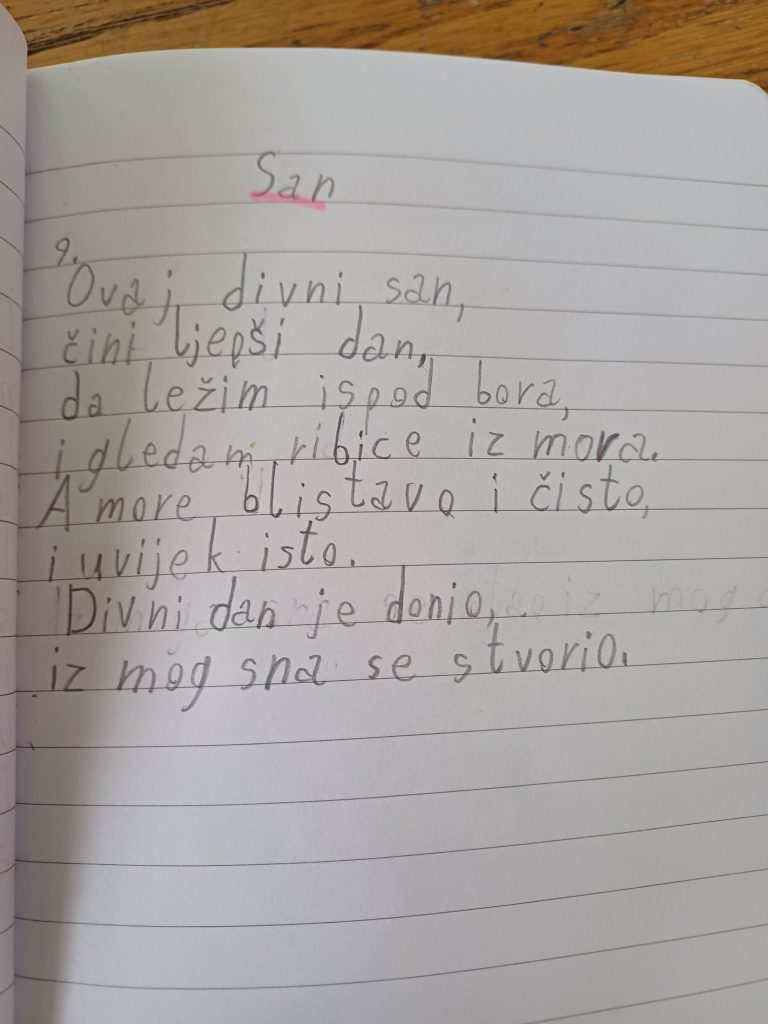 San
9.
Ovaj divni san,
čini ljepši dan,
da ležim ispod bora,
i gledam ribice iz mora.
A more blistavo i čisto,
i uvijek isto.
Divni dan je donio,
iz mog sna se stvorio.